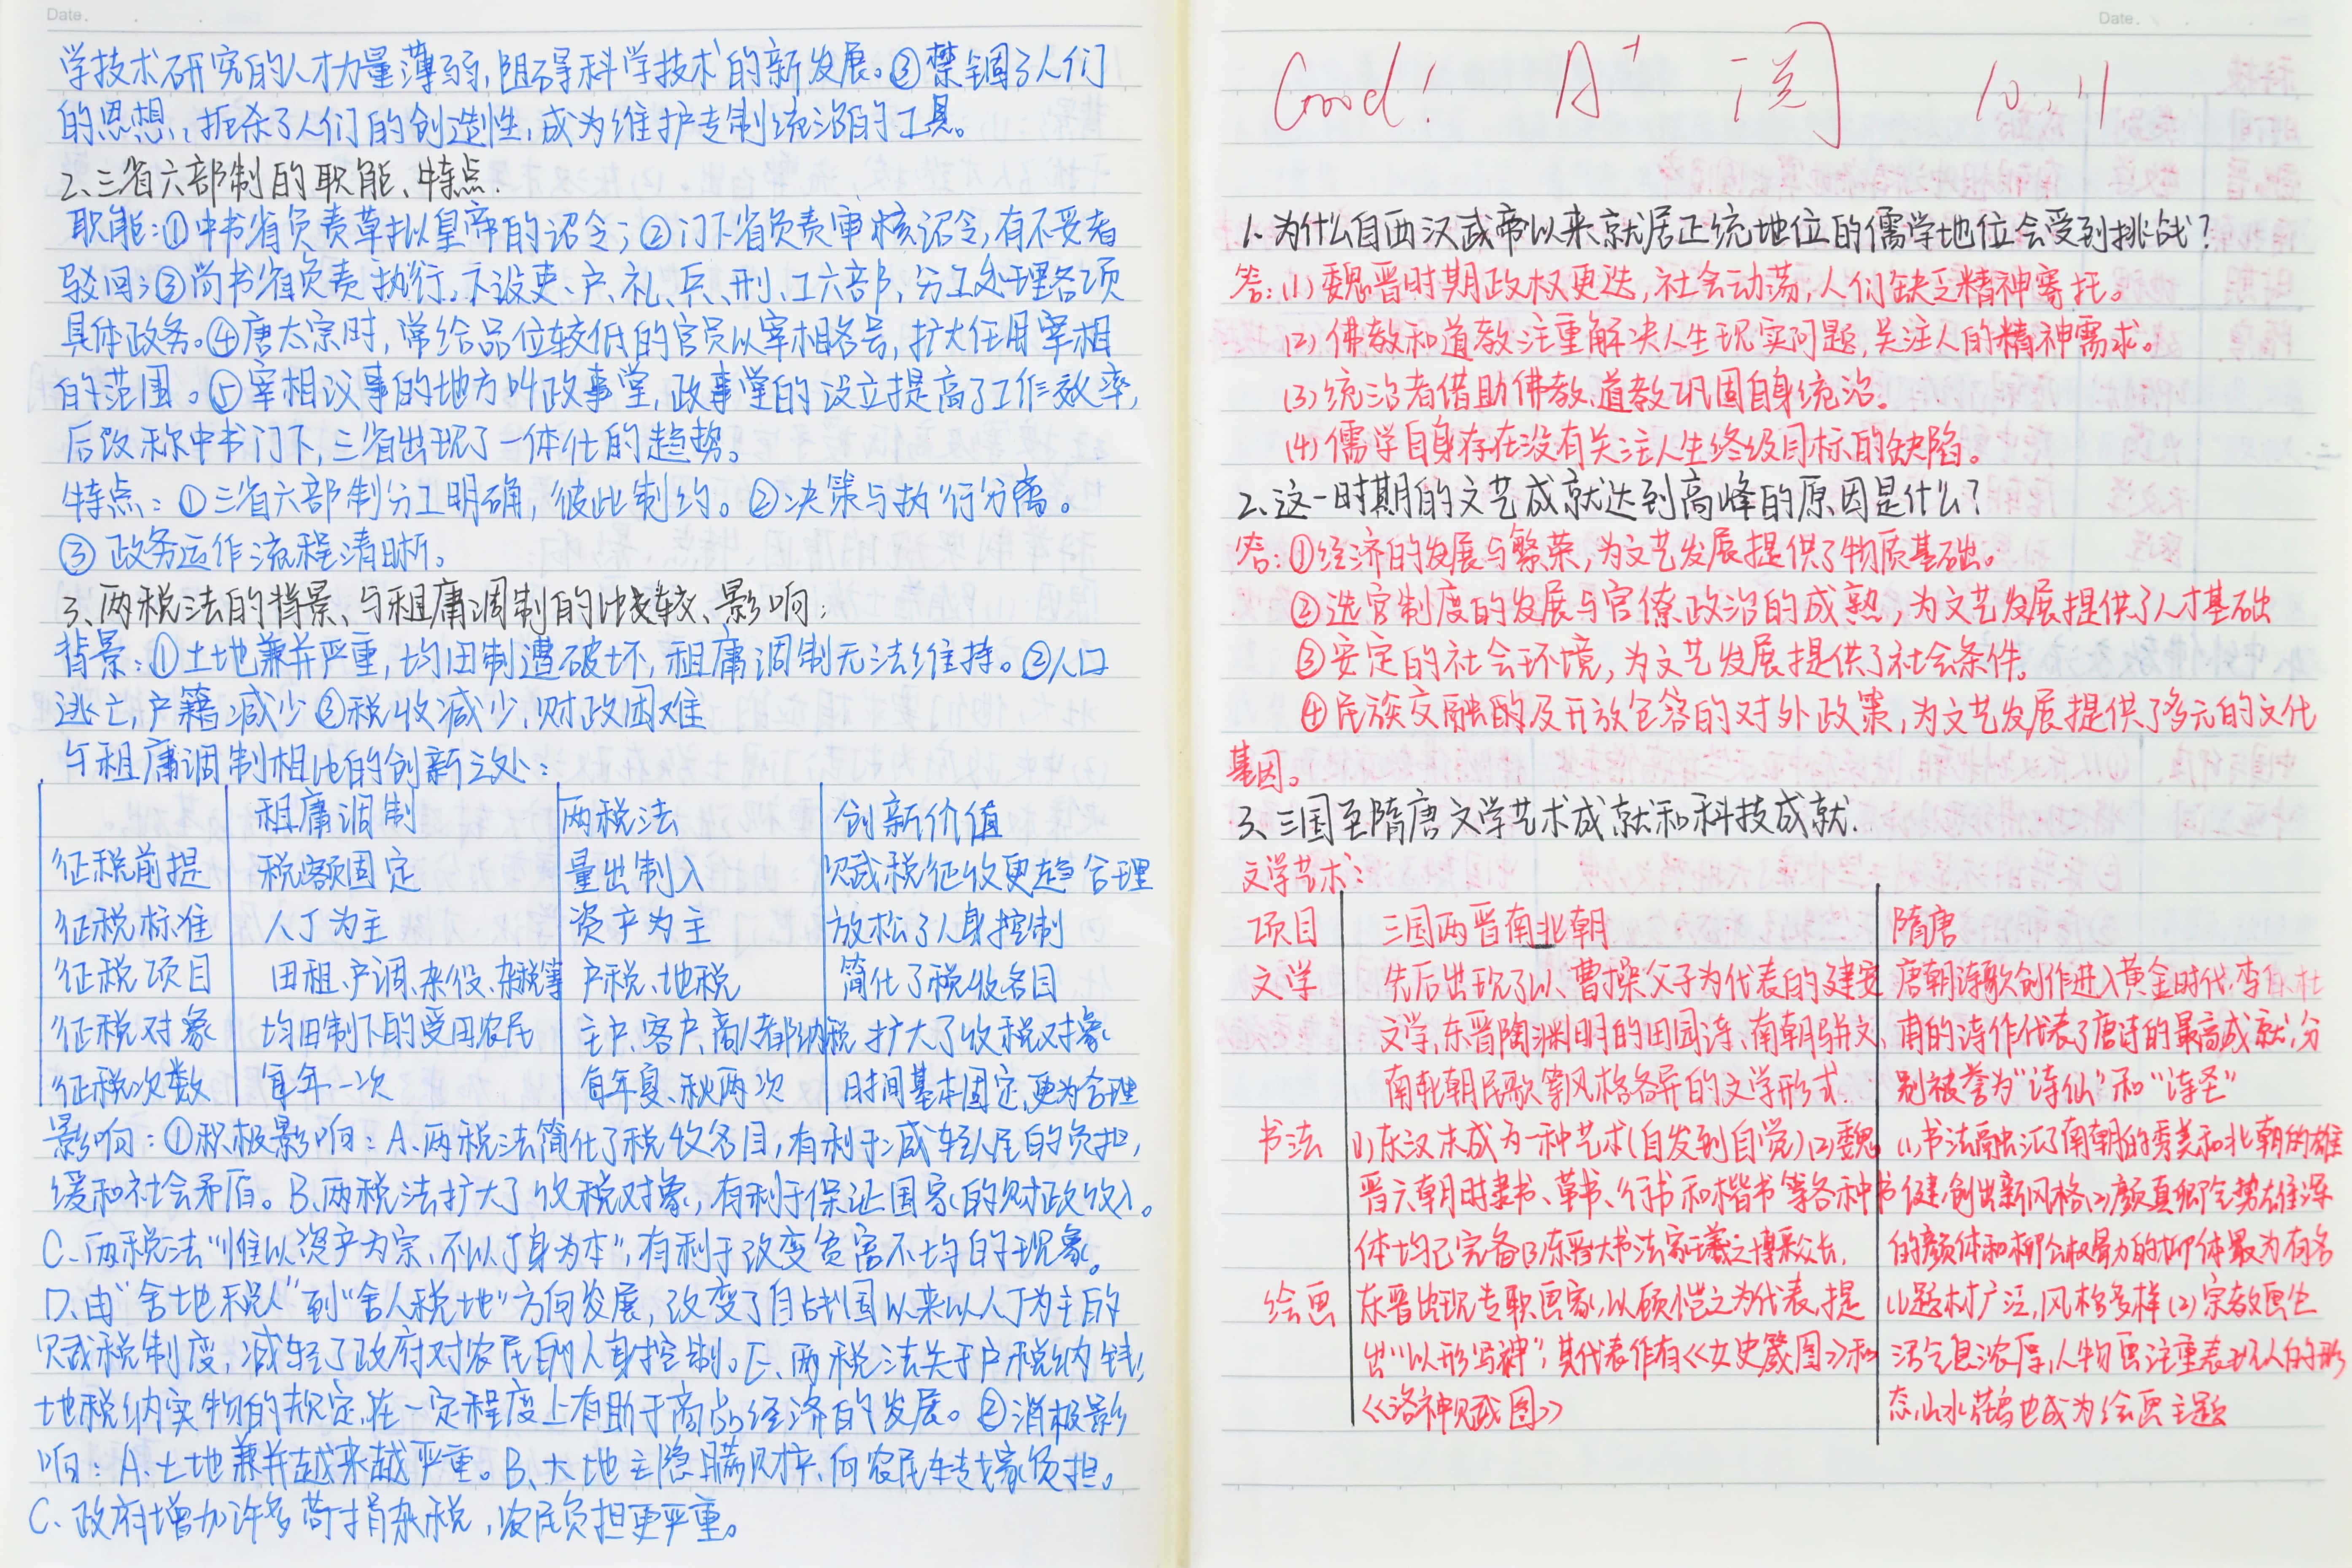 Date.
学技术研究的人才力量薄弱,阻碍科学技术的新发展。③禁锢了人们
的思想,扼杀了人们的创造性,成为维护专制统治的工具。
2、三省六部制的职能、特点.
职能:①中书省负责草拟皇帝的诏令;②门下省负责审核诏令,有不妥者
驳回;③尚书省负责执行。下设吏、户、礼、兵、刑、工六部,分工处理各项
具体政务。④唐太宗时,常给品位较低的官员以宰相名号,扩大任用宰相
的范围。⑤宰相议事的地方叫政事堂,政事堂的设立提高了工作效率,
后改称中书门下,三省出现了一体化的趋势。
特点:①三省六部制分工明确,彼此制约。②决策与执行分离。
③政务运作流程清晰。
3、两税法的背景、与租庸调制的比较、影响:
背景:①土地兼并严重,均田制遭破坏,租庸调制无法维持。②人口
逃亡,户籍减少③税收减少,财政困难
与租庸调制相比的创新之处:
租庸调制 两税法 创新价值
征税前提 税额固定 量出制入 赋税征收更趋合理
征税标准 人丁为主 资产为主 放松了人身控制
征税项目 田租、户调、杂役、杂税等 户税、地税 简化了税收名目
征税对象 均田制下的受田农民 主户、客户、商人都纳税 扩大了收税对象
征税次数 每年一次 每年夏、秋两次 时间基本固定,更为合理
影响:①积极影响:A、两税法简化了税收名目,有利于减轻人民的负担,
缓和社会矛盾。B、两税法扩大了收税对象,有利于保证国家的财政收入。
C、两税法“惟以资产为宗,不以丁身为本”,有利于改变贫富不均的现象。
D、由“舍地税人”到“舍人税地”方向发展,改变了自战国以来以人丁为主的
赋税制度,减轻了政府对农民的人身控制。E、两税法关于户税纳钱,
地税纳实物的规定,在一定程度上有助于商品经济的发展。②消极影
响:A、土地兼并越来越严重。B、大地主隐瞒财产,向农民转嫁负担。
C、政府增加许多苛捐杂税,农民负担更严重。
Date.
Good! A+ 阅 10.11
1、为什么自西汉武帝以来就居正统地位的儒学地位会受到挑战?
答:(1)魏晋时期政权更迭,社会动荡,人们缺乏精神寄托。
(2)佛教和道教注重解决人生现实问题,关注人的精神需求。
(3)统治者借助佛教、道教巩固自身统治。
(4)儒学自身存在没有关注人生终级目标的缺陷。
2、这一时期的文艺成就达到高峰的原因是什么?
答:①经济的发展与繁荣,为文艺发展提供了物质基础。
②选官制度的发展与官僚政治的成熟,为文艺发展提供了人才基础
③安定的社会环境,为文艺发展提供了社会条件。
④民族交融的及开放包容的对外政策,为文艺发展提供了多元的文化
基因。
3、三国至隋唐文学艺术成就和科技成就.
文学艺术:
项目 三国两晋南北朝 隋唐
文学 先后出现了以曹操父子为代表的建安 唐朝诗歌创作进入黄金时代,李白、杜
文学,东晋陶渊明的田园诗、南朝骈文、 甫的诗作代表了唐诗的最高成就,分
南北朝民歌等风格各异的文学形式. 别被誉为“诗仙”和“诗圣”
书法 (1)东汉末成为一种艺术(自发到自觉)(2)魏 (1)书法融汇了南朝的秀美和北朝的雄
晋六朝时隶书、草书、行书和楷书等各种书 健,创出新风格(2)颜真卿气势雄浑
体均已完备(3)东晋大书法家王羲之博采众长, 的颜体和柳公权骨力的柳体最为有名
绘画 东晋出现专职画家,以顾恺之为代表,提 (1)题材广泛,风格多样(2)宗教画生
出“以形写神”,其代表作有《女史箴图》和 活气息浓厚,人物画注重表现人的形
《洛神赋图》 态,山水花鸟也成为绘画主题